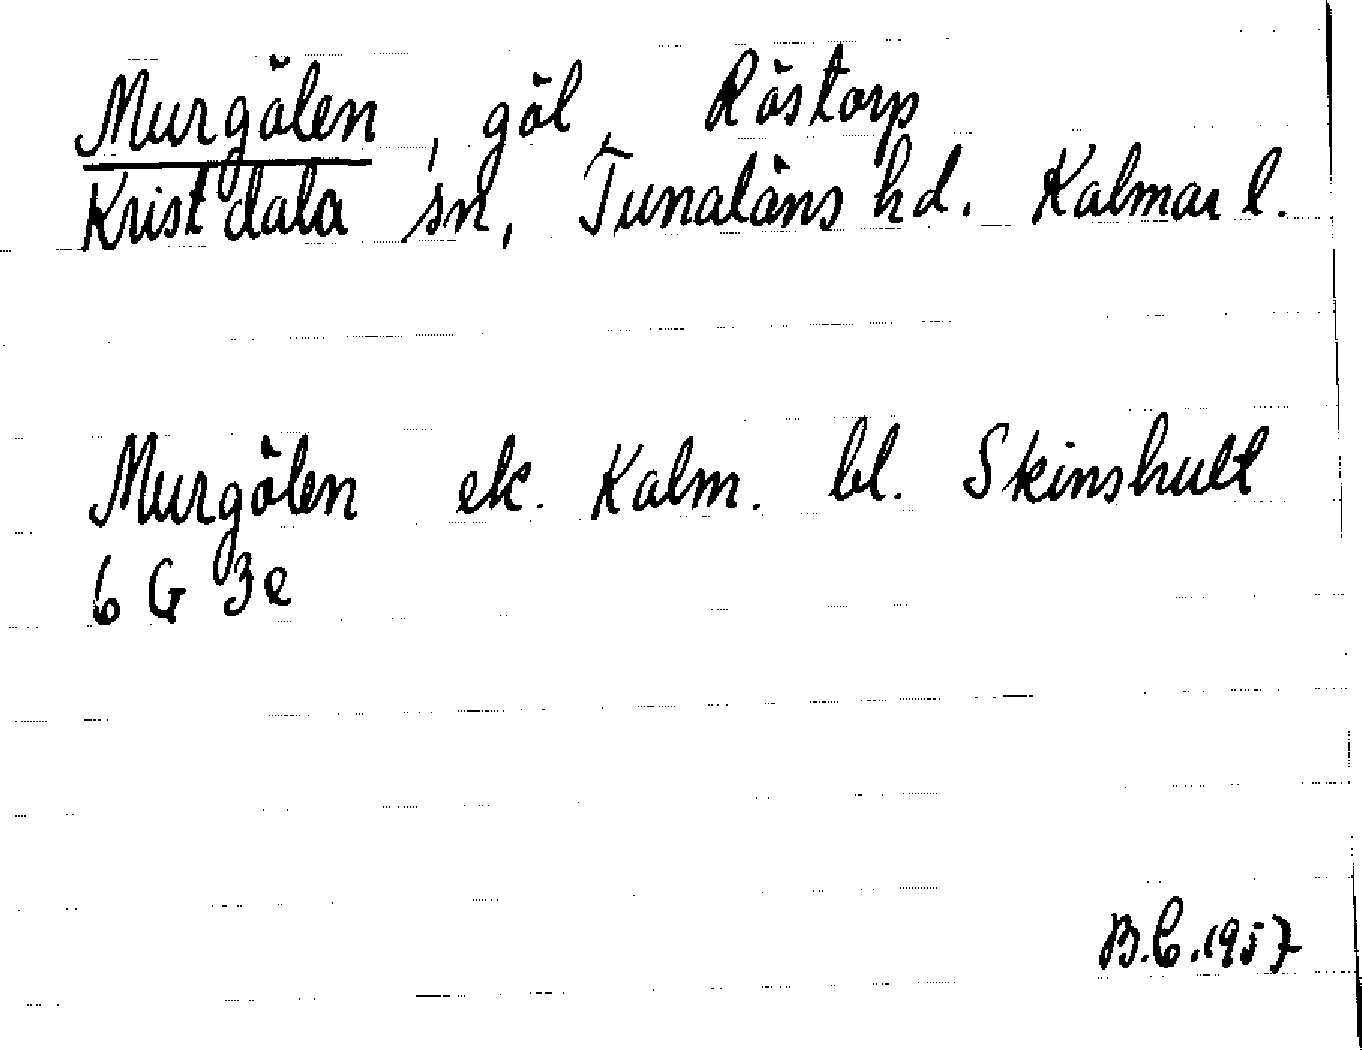 Murgölen, göl, Röstorp
Kristdala sn, Tunaläns hd. Kalmar l.
Murgölen ek. Kalm. bl. Skinshult
6 G 3e
B.C. 1957